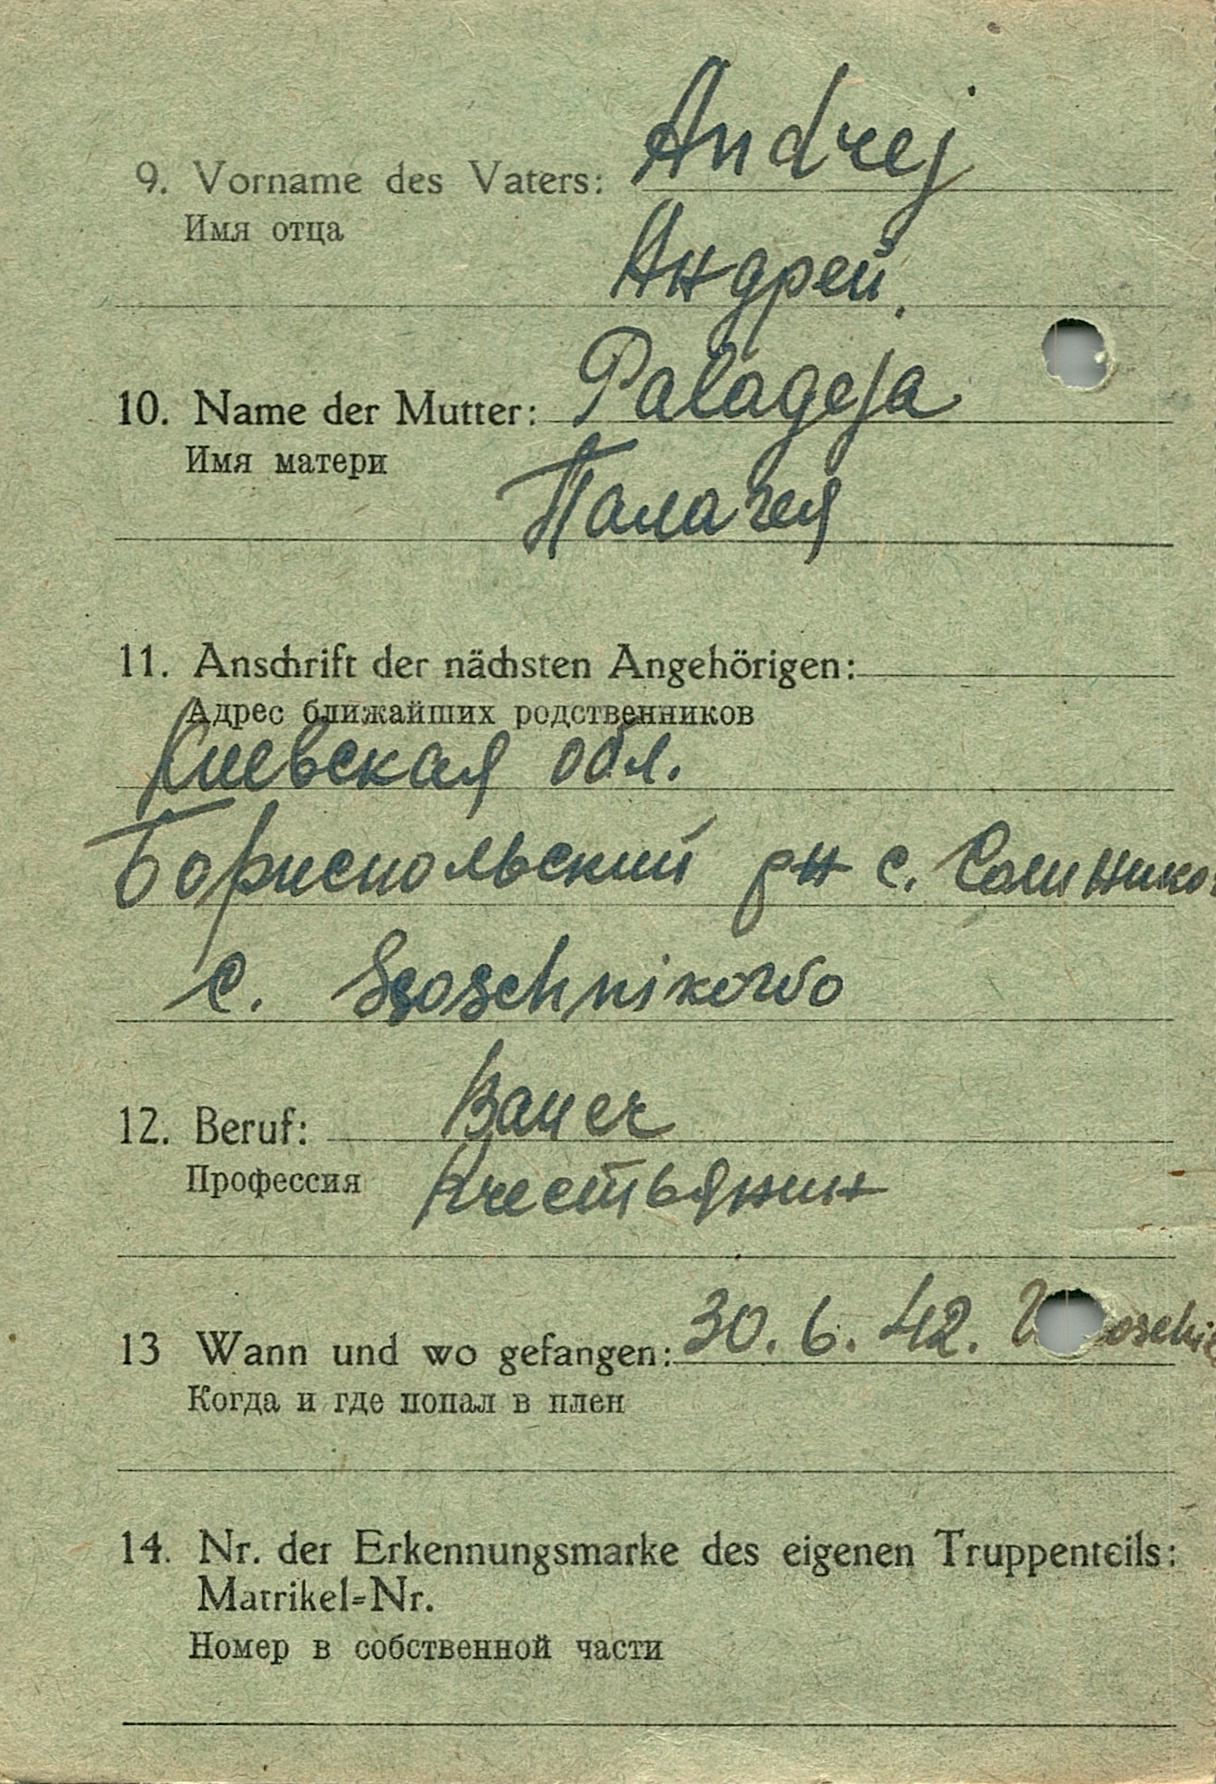 9. Vorname des Vaters: Andrej
Имя отца
Андрей.
10. Name der Mutter: Palageja
Имя матери
Палагея
11. Anschrift der nächsten Angehörigen:
Адрес ближайших родственников
Киевская обл.
Бориспольский рн с.
с. Sgoschnikowo
12. Beruf: Bauer
Профессия
Крестьянин
13 Wann und wo gefangen: 30.6.42.
Когда и где попал в плен
14. Nr. der Erkennungsmarke des eigenen Truppenteils:
Matrikel-Nr.
Номер в собственной части